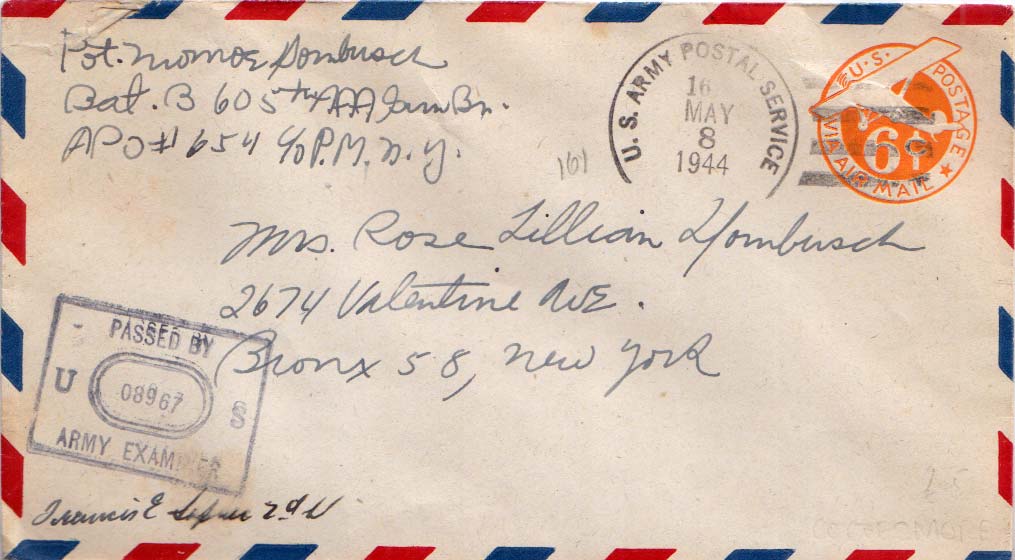 Pvt. Monroe Dornbusch
Bat. B 605th AAA Gun Bn.
APO # 654 c/o P.M. N.Y.
U.S. ARMY POSTAL SERVICE
16
MAY
8
1944
U.S. POSTAGE
6¢
VIA AIR MAIL
161
Mrs. Rose Lillian Dornbusch
2674 Valentine Ave.
Bronx 58, New York
PASSED BY
U 08967 S
ARMY EXAMINER
Francis E 2nd Lt